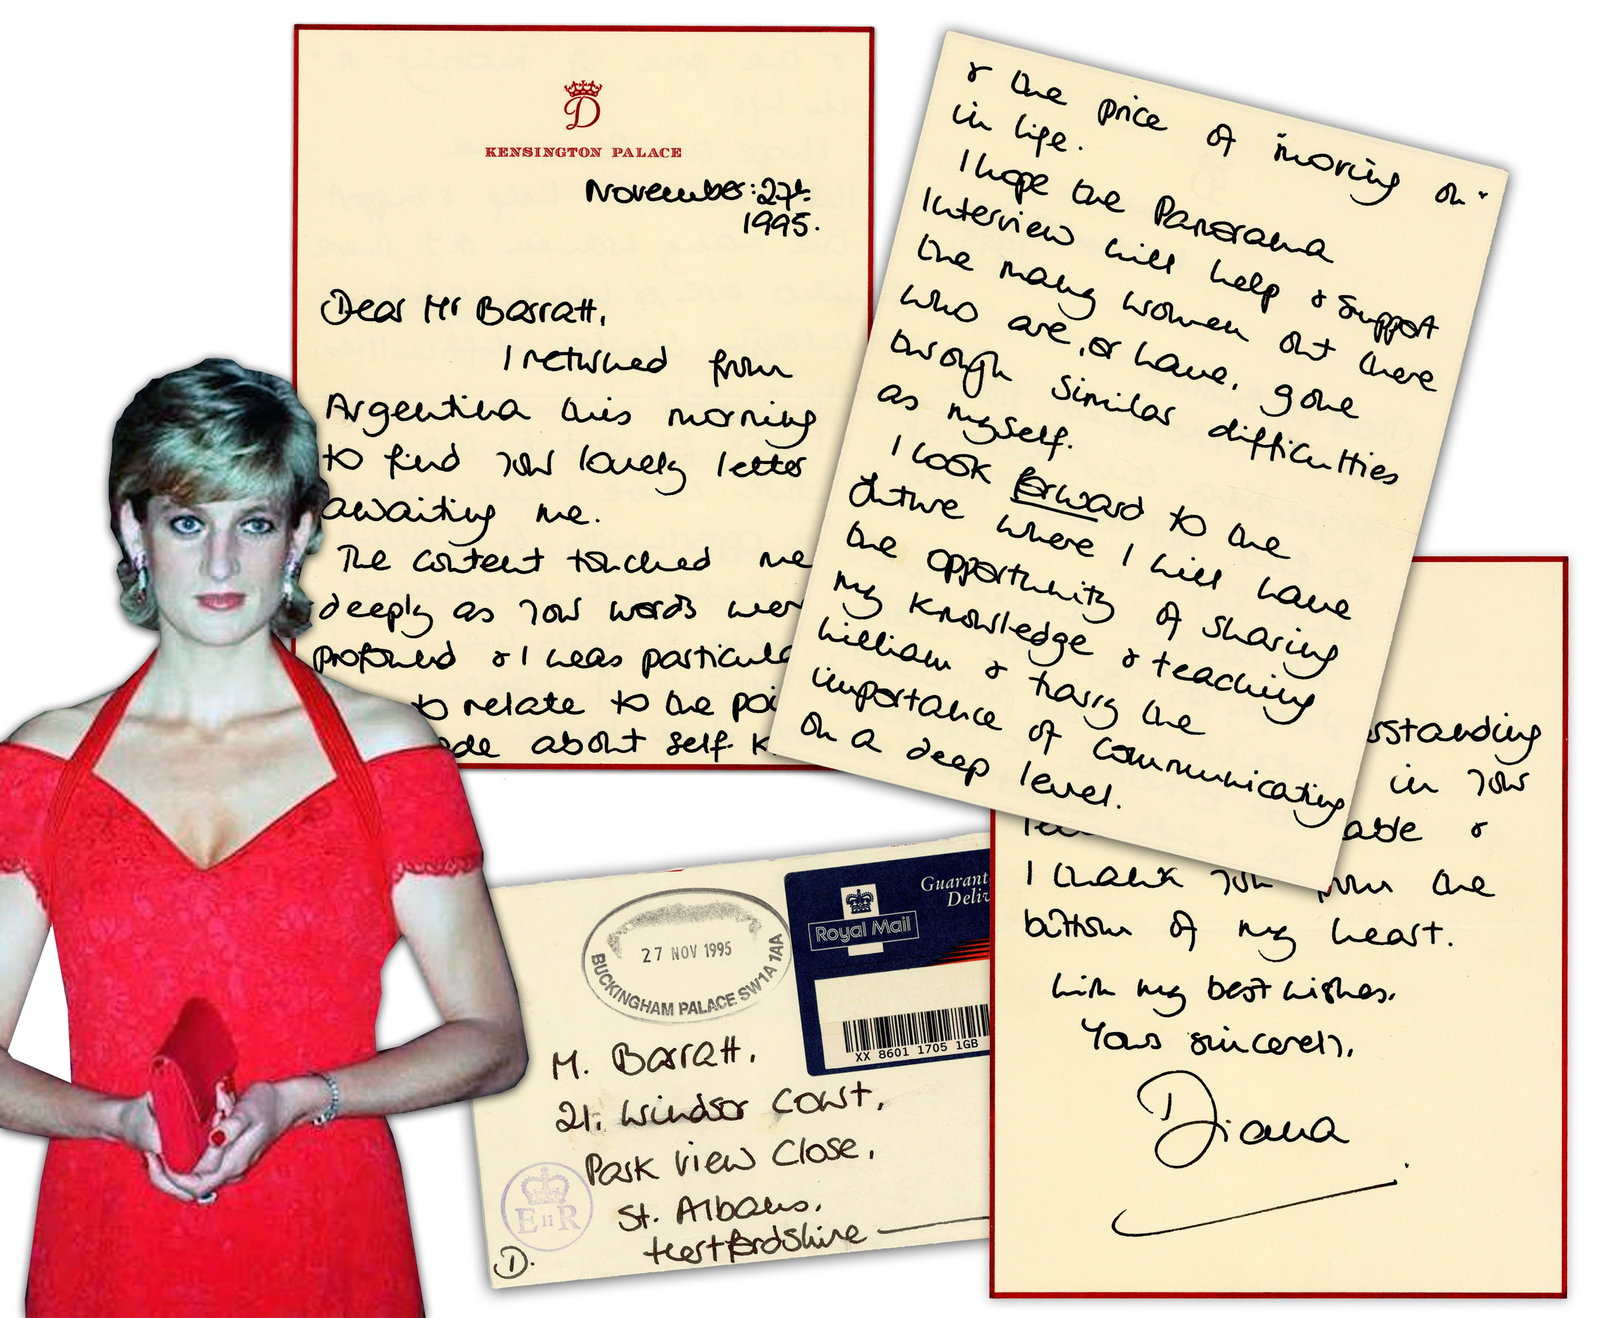 D
KENSINGTON PALACE
November: 27th
1995.
Dear Mr Barratt,
I returned from
Argentina this morning
to find your lovely letter
awaiting me.
The content touched me
deeply as your words wer
profound & I was particula
to relate to the poi
de about self-k
& the price of "moving on"
in life.
I hope the Panorama
Interview will help & support
the many women out there
who are, or have, gone
through similar difficulties
as myself.
I look forward to the
future where I will have
the opportunity of sharing
my knowledge & teaching
William & Harry the
importance of communicating
on a deep level.
rstanding
in your
able &
I thank you from the
bottom of my heart.
With my best wishes.
Yours sincerely,
Diana
27 NOV 1995
BUCKINGHAM PALACE SW1A 1AA
Royal Mail
Guarant
Deliv
XX 8601 1705 1GB
M. Barratt,
21, Windsor Court,
Park View Close,
St. Albans,
Hertfordshire
E II R
D.